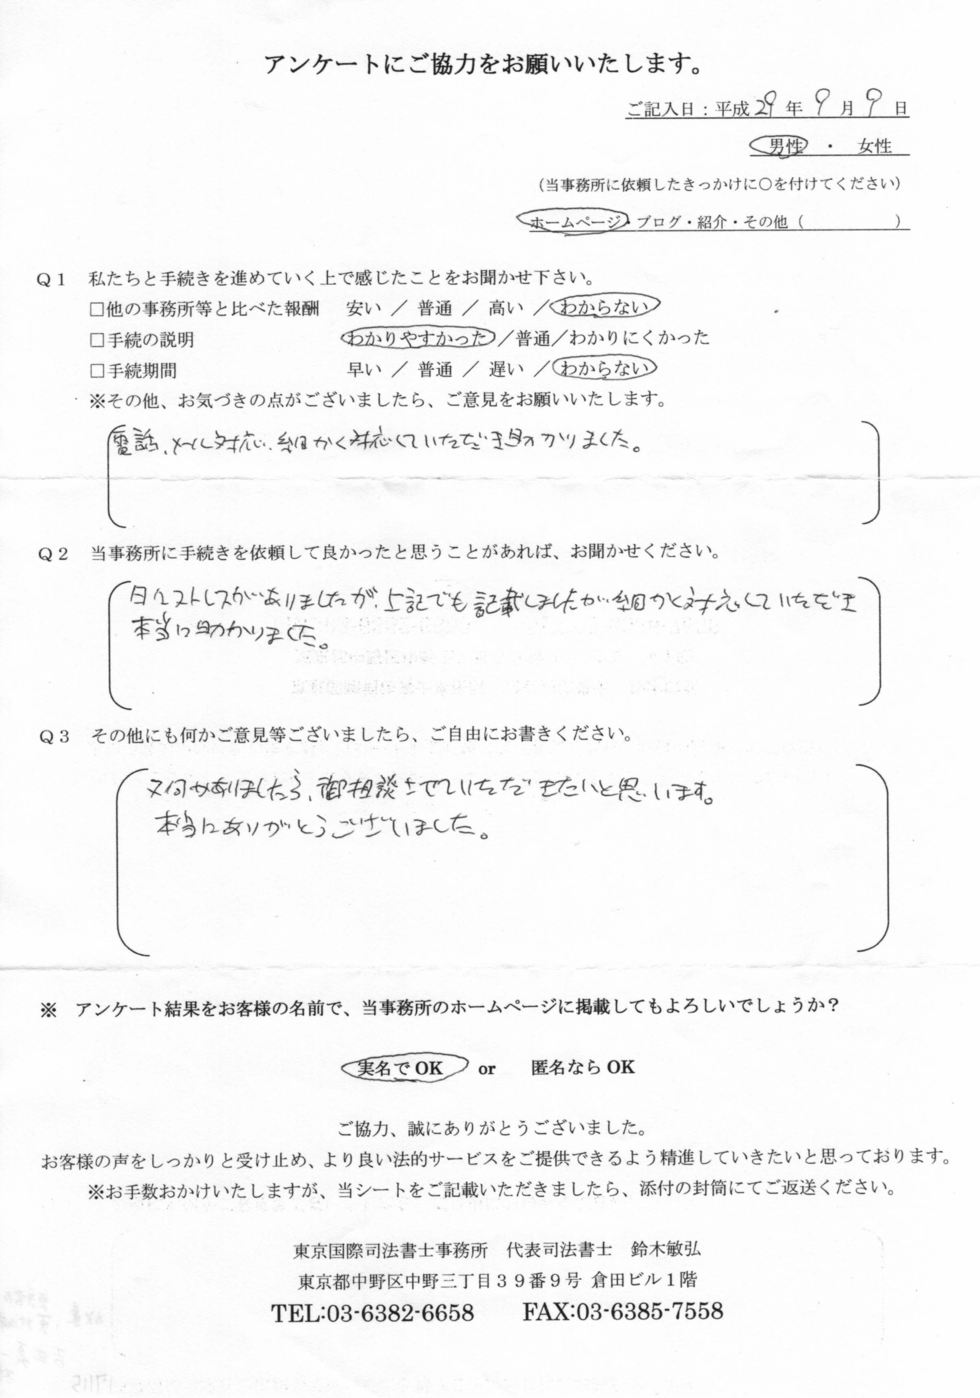 アンケートにご協力をお願いいたします。
ご記入日：平成29年9月9日
男性 ・ 女性
（当事務所に依頼したきっかけに○を付けてください）
ホームページ・ブログ・紹介・その他（　　　　　　）
Ｑ１　私たちと手続きを進めていく上で感じたことをお聞かせ下さい。
□他の事務所等と比べた報酬　安い ／ 普通 ／ 高い ／わからない
□手続の説明　わかりやすかった ／普通／わかりにくかった
□手続期間　早い ／ 普通 ／ 遅い ／わからない
※その他、お気づきの点がございましたら、ご意見をお願いいたします。
電話、メール対応、細かく対応していただき助かりました。
Ｑ２　当事務所に手続きを依頼して良かったと思うことがあれば、お聞かせください。
日々ストレスがありましたが、上記でも記載しましたが細かく対応していただき
本当に助かりました。
Ｑ３　その他にも何かご意見等ございましたら、ご自由にお書きください。
又何かありましたら、御相談させていただきたいと思います。
本当にありがとうございました。
※　アンケート結果をお客様の名前で、当事務所のホームページに掲載してもよろしいでしょうか？
実名でOK　or　匿名ならOK
ご協力、誠にありがとうございました。
お客様の声をしっかりと受け止め、より良い法的サービスをご提供できるよう精進していきたいと思っております。
※お手数おかけいたしますが、当シートをご記載いただきましたら、添付の封筒にてご返送ください。
東京国際司法書士事務所　代表司法書士　鈴木敏弘
東京都中野区中野三丁目３９番９号 倉田ビル１階
TEL:03-6382-6658　FAX:03-6385-7558